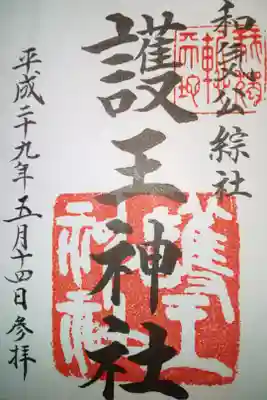 和気公綜社
護王神社
平成二十九年五月十四日参拝
護王
神社